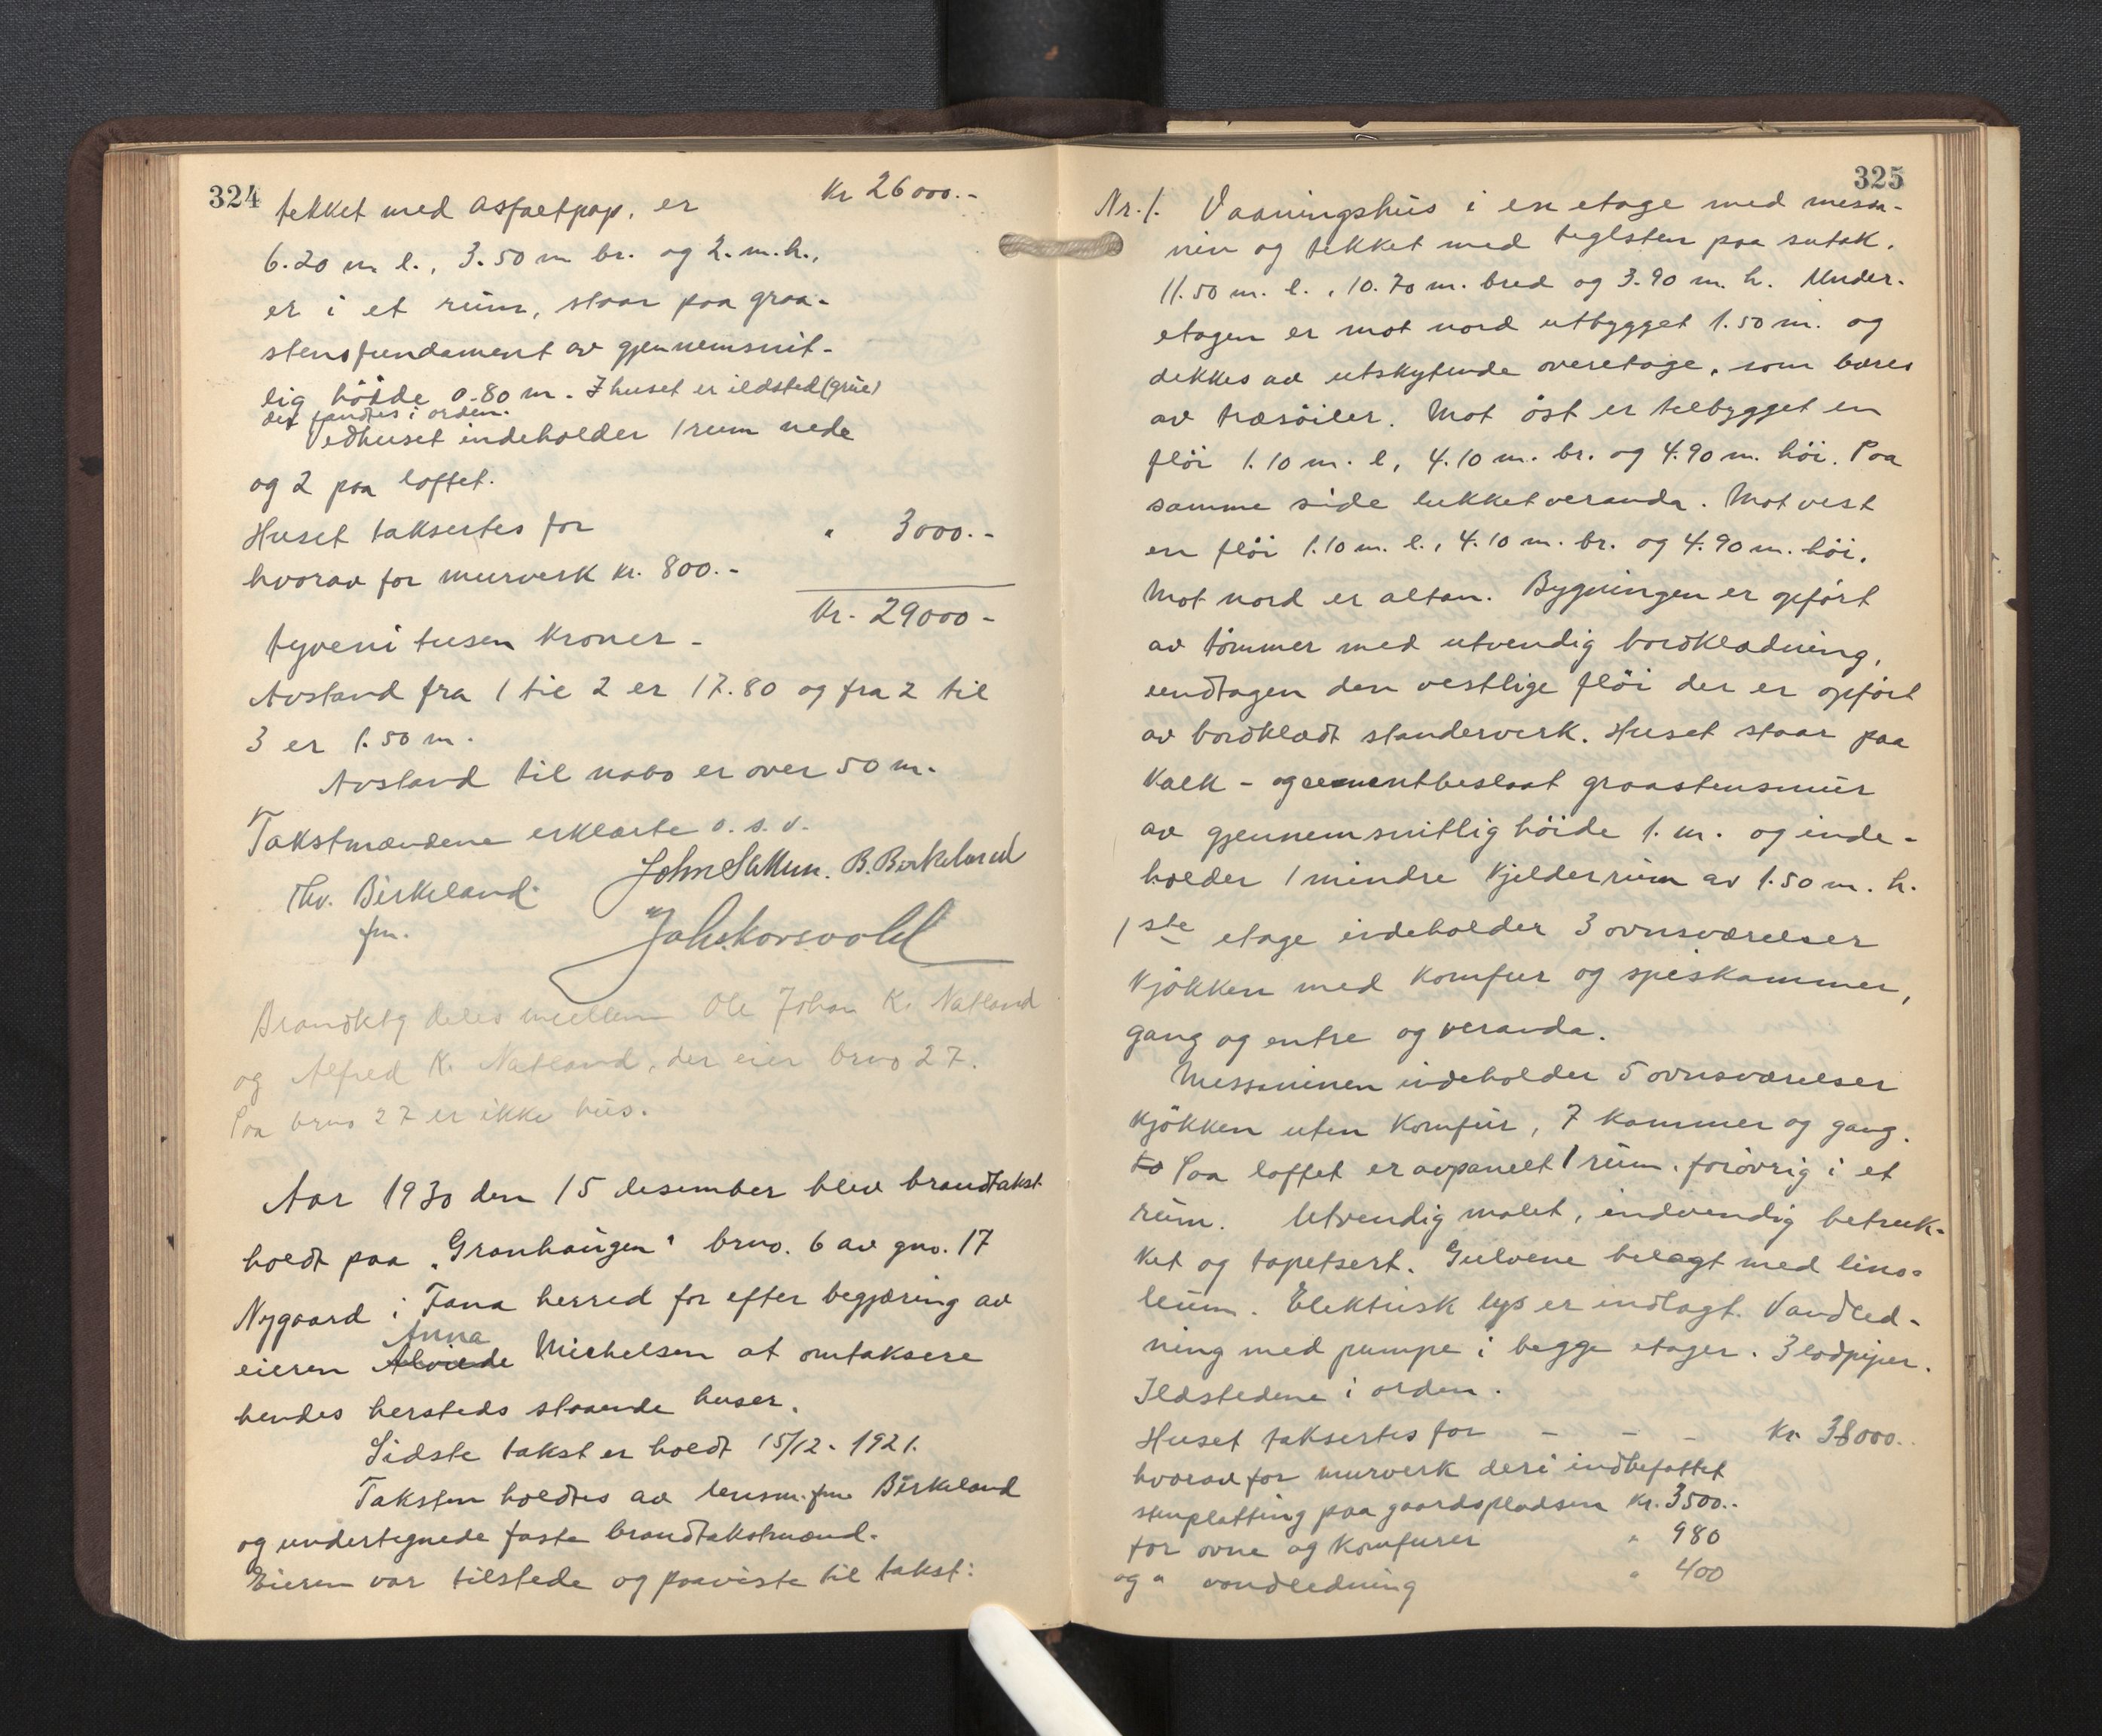 324
tekket med asfaltpap, er Kr 26000.-
6.20 m l., 3.50 m br. og 2. m. h.,
er i et rum, staar paa graa-
stensfundament av gjennemsnit-
lig høide 0.80 m. I huset er ildsted (grue)
det fandtes i orden.
Vedhuset indeholder 1 rum nede
og 2 paa loftet.
Huset taksertes for " 3000.-
hvorav for murverk kr. 800.-
Kr. 29000-
tyveni tusen kroner -
Avstand fra 1 til 2 er 17.80 og fra 2 til
3 er 1.50 m.
Avstand til nabo er over 50 m.
Takstmændene erklærte o. s. v.
John B. Birkeland
Thv. Birkeland
fm.
Brandktg deles mellem Ole Johan K. Natland
og Alfred K. Natland, der eier brno 27.
Paa brno 27 er ikke hus.
Aar 1930 den 15 desember blev brandtakst
holdt paa "Granhaugen" brno. 6 av gno. 17
Nygaard i Fana herred for efter begjæring av
Anna
eieren Alvilde Michelsen at omtaksere
hendes hersteds staaende huser.
Sidste takst er holdt 15/12- 1921.
Taksten holdtes av lensm. fm. Birkeland
og undertegnede faste brandtakstmænd.
Eieren var tilstede og paaviste til takst:
325
Nr. 1. Vaaningshus i en etage med messa-
nin og tekket med teglsten paa sutak.
11.50 m. l., 10.70 m. bred og 3.90 m. h. Under-
etagen er mot nord utbygget 1.50 m. og
dekkes av utskytende overetage, som bæres
av træsøiler. Mot øst er tilbygget en
fløi 1.10 m. l, 4.10 m. br. og 4.90 m. høi. Paa
samme side lukket veranda. Mot vest
en fløi 1.10 m. l., 4.10 m. br. og 4.90 m. høi.
Mot nord er altan. Bygningen er opført
av tømmer med utvendig bordklædning,
undtagen den vestlige fløi der er opført
av bordklædt standerverk. Huset staar paa
kalk- og cementbeslaat graastensmur
av gjennemsnitlig høide 1. m. og inde-
holder 1 mindre kjelderrum av 1.50 m. h.
1ste etage indeholder 3 ovnsværelser
kjøkken med komfur og spiskammer,
gang og entre og veranda.
Messaninen indeholder 5 ovnsværelser
kjøkken uten komfur, 7 kammer og gang.
to Paa loftet er avpanelt 1 rum, forøvrig i et
rum. Utvendig malet, indvendig betruk-
ket og tapetsert. Gulvene belagt med lino-
leum. Elektrisk lys er indlagt. Vandled-
ning med pumpe i begge etager. 3 lodpiper.
Ildstedene i orden.
Huset taksertes for - - - Kr. 38000.
hvorav for murverk deri indbefattet
stenplatting paa gaardspladsen Kr. 3500.-
for ovne og komfurer " 980
og " vandledning " 400